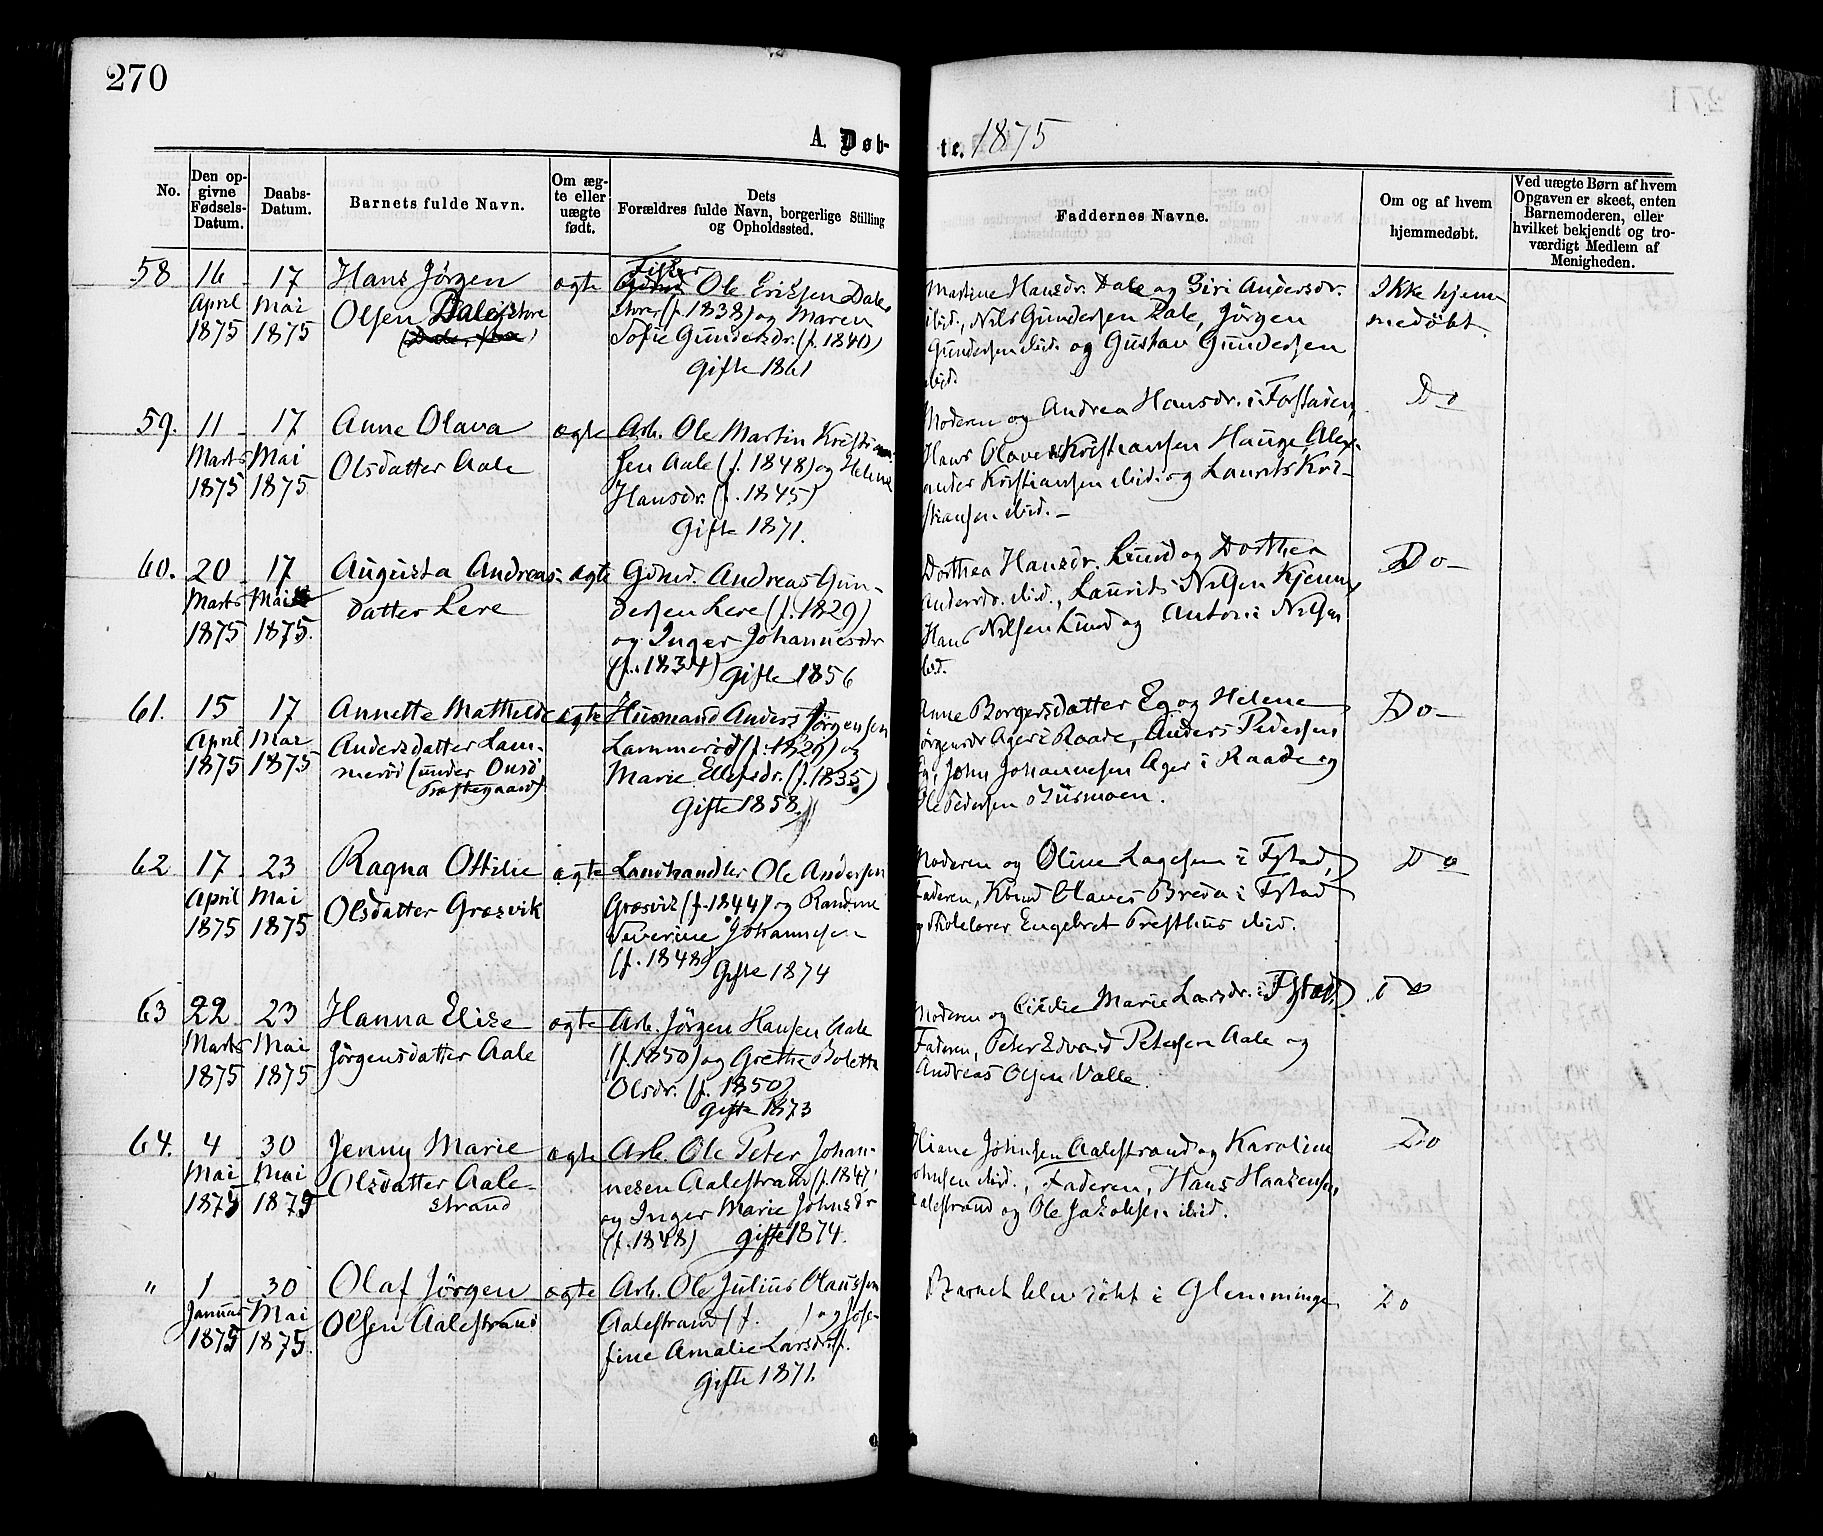 270
A. Døb-
te. 1875
No.
Den op-
givne
Fødsels-
Datum.
Daabs-
Datum.
Barnets fulde Navn.
Om æg-
te eller
uægte
født.
Dets
Forældres fulde Navn, borgerlige Stilling
og Opholdssted.
Faddernes Navne.
Om og af hvem
hjemmedøbt.
Ved uægte Børn af hvem
Opgaven er skeet, enten
Barnemoderen, eller
hvilket bekjendt og tro-
værdigt Medlem af
Menigheden.
58
16
April
1875
17
Mai
1875
Hans Jørgen
Olsen Dale store
ægte
Fisker
Ole Eriksen Dale
store (f. 1838) og Maren
Sofie Gundersdr. (f. 1840)
Gifte 1861
Martine Hansdr. Dale og Siri Andersdr.
ibid., Nils Gundersen Dale, Jørgen
Gundersen ibid. og Gustav Gundersen
ibid.
Ikke hjem-
medøbt.
59.
11
Marts
1875
17
Mai
1875
Anne Olava
Olsdatter Aale
ægte
Arb. Ole Martin Kristian-
sen Aale (f. 1848) og Helene
Hansdr. (f. 1845)
Gifte 1871.
Moderen og Andrea Hansdr. i Forstaden,
Hans Olaves Kristiansen Hauge, Alex-
ander Kristiansen ibid. og Laurits Kri-
stiansen ibid. –
Do
60.
20
Marts
1875
17
Mai
1875.
Augusta Andreas-
datter Lere
ægte
Gdmd. Andreas Gun-
dersen Lere (f. 1829)
og Inger Johannesdr
(f. 1834) Gifte 1856
Dorthea Hansdr. Lund og Dorthea
Andersdr. ibid., Laurits Nilsen Kjenne,
Hans Nilsen Lund og Anton Nilsen
ibid.
Do –
61.
15
April
1875
17
Mai
1875
Annette Mathilde
Andersdatter Lam-
merød (under Onsø
Præstegaard)
ægte
Husmand Anders Jørgensen
Lammerød (f. 1829) og
Marie Ellefsdr. (f. 1835)
Gifte 1858.
Anne Borgersdatter Eg og Helene
Jørgensdr Ager i Raade, Anders Pedersen
Eg, John Johannesen Ager i Raade og
Ole Pedersen Husmoen.
Do –
62
17
April
1875
23
Mai
1875
Ragna Ottilie
Olsdatter Græsvik
ægte
Landhandler Ole Andersen
Græsvik (f. 1844) og Randine
Severine Johannesen
(f. 1848) Gifte 1874
Moderen og Oline Lagesen i Fstad,
Faderen, Knud Olaves Breda i Fstad
og Skolelærer Engebret Presthus ibid.
Do
63
22
Marts
1875
23
Mai
1875
Hanna Elise
Jørgensdatter Aale
ægte
Arb. Jørgen Hansen Aale
(f. 1850) og Grethe Bolette
Olsdr. (f. 1850)
Gifte 1873
Moderen og Marie Larsdr. i Fstad,
Faderen, Peter Edvard Petersen Aale og
Andreas Olsen Valle.
Do
64.
4
Mai
1875
30
Mai
1875
Jenny Marie
Olsdatter Aale-
strand
ægte
Arb. Ole Peter Johan-
nesen Aalestrand (f. 1847)
og Inger Marie Johnsdr
(f. 1848) Gifte 1874.
Oliane Johnsen Aalestrand og Karoline
Johnsen ibid., Faderen, Hans Haagensen
Aalestrand og Ole Jakobsen ibid.
Do
"
1
Januar
1875
30
Mai
1875.
Olaf Jørgen
Olsen Aalestrand
ægte
Arb. Ole Julius Olaussen
Aalestrand (f. ) og Jose-
fine Amalie Larsdr. f.
Gifte 1871.
Barnet blev døbt i Glemminge
Do